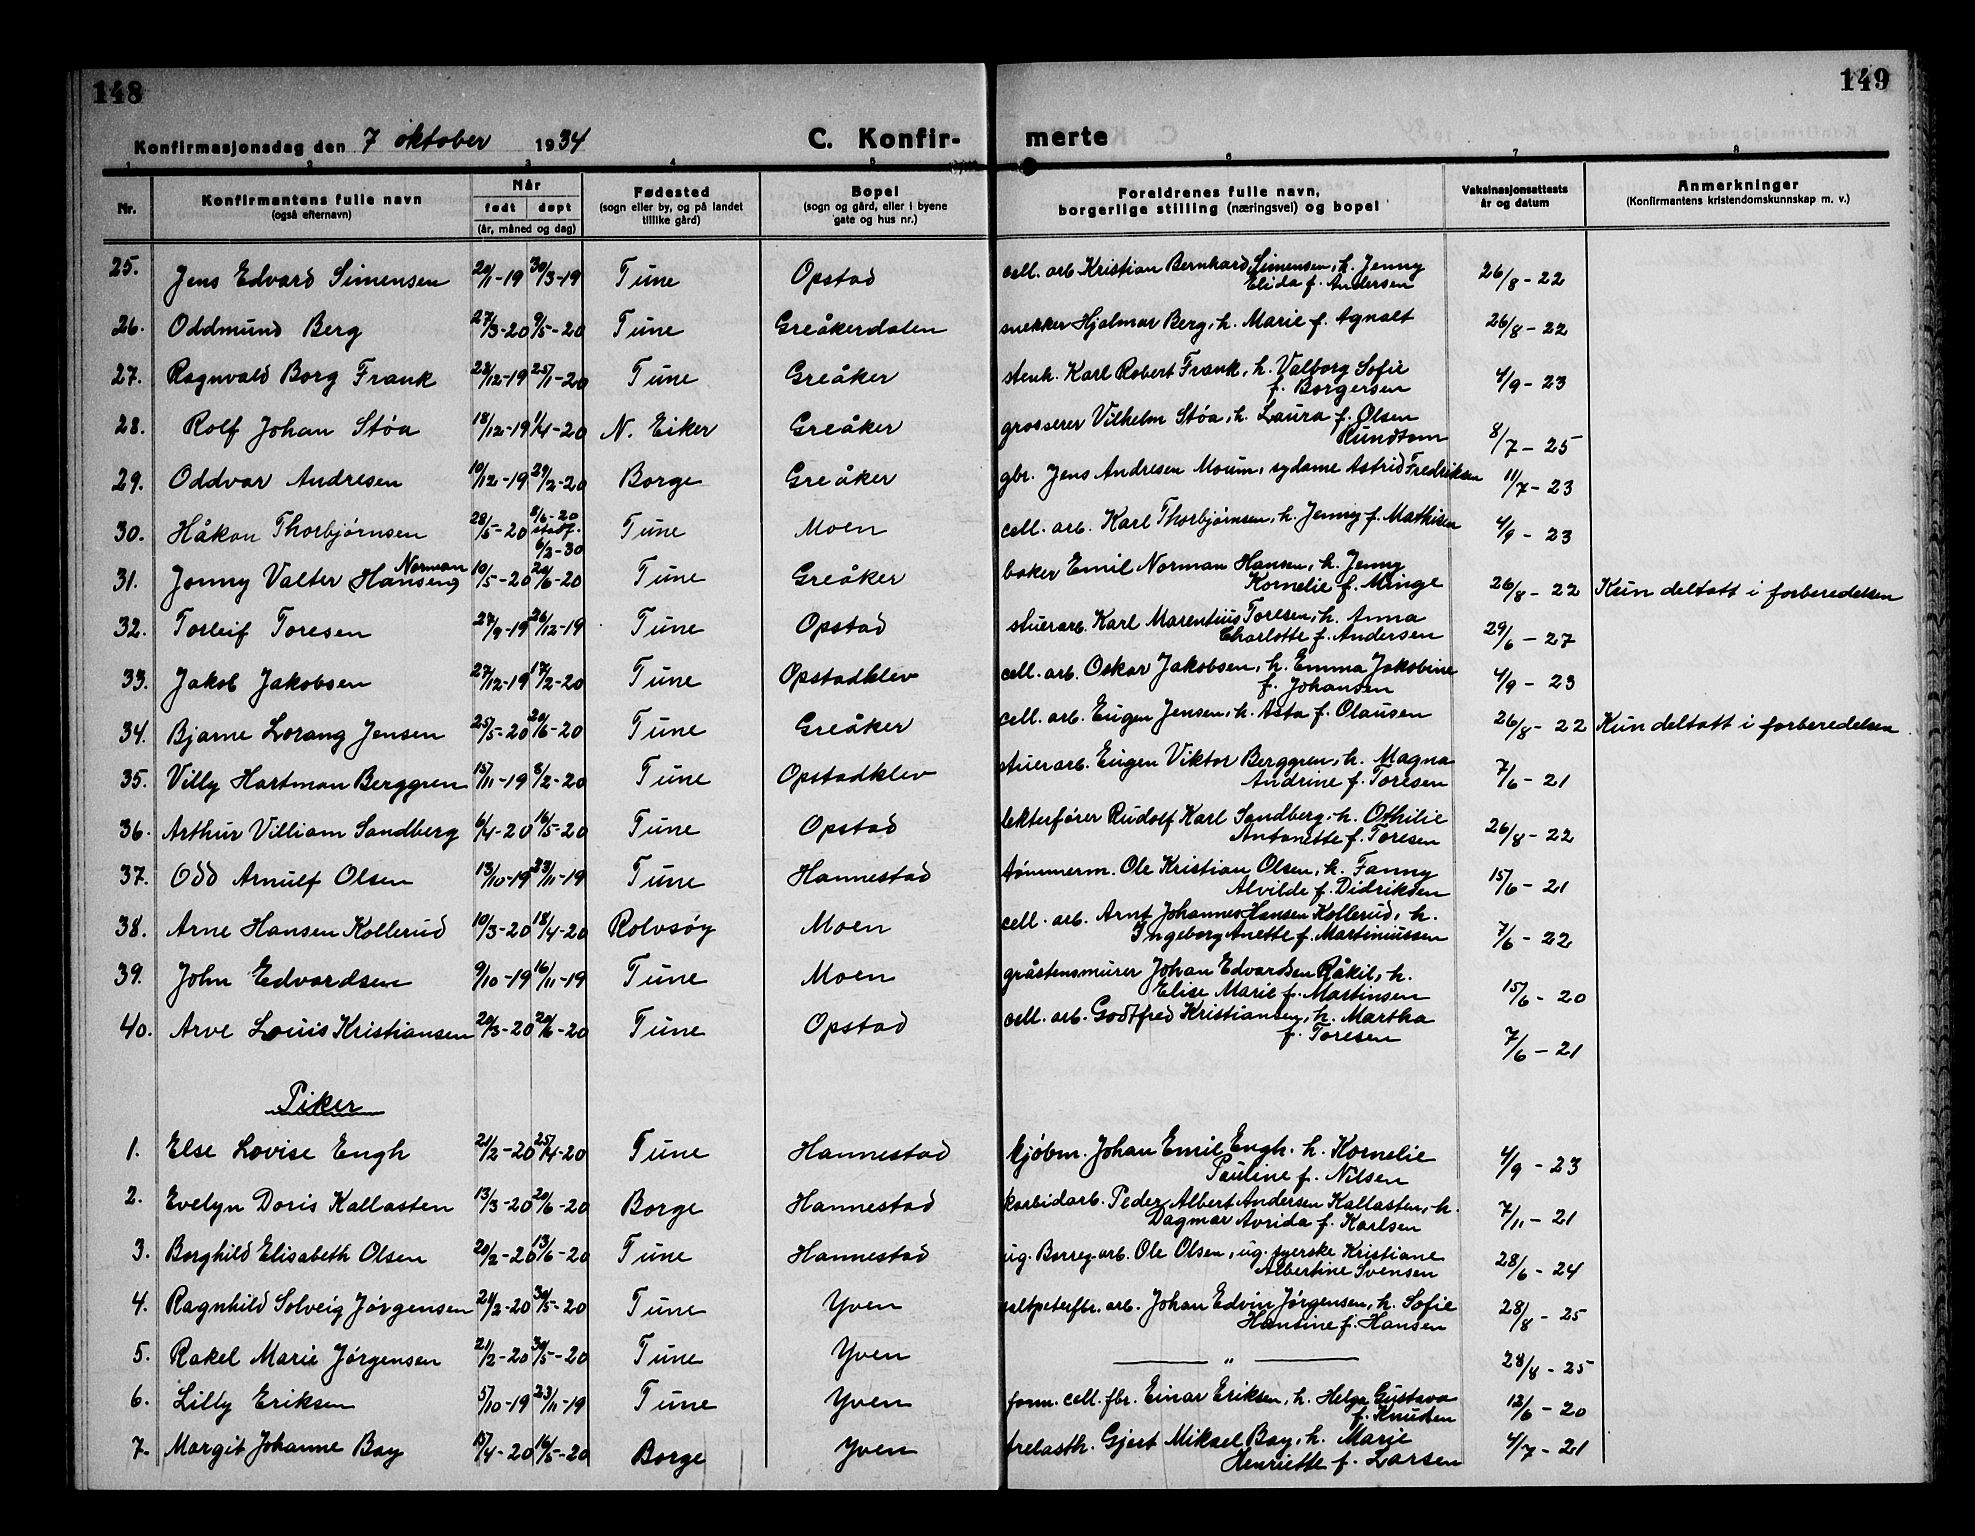 148
149
Konfirmasjonsdag den 7 oktober 1934
C. Konfir- merte
1 2 3 4 5 6 7 8
Nr.
Konfirmantens fulle navn
(også efternavn)
Når
født døpt
(år, måned og dag)
Fødested
(sogn eller by, og på landet
tillike gård)
Bopel
(sogn og gård, eller i byene
gate og hus nr.)
Foreldrenes fulle navn,
borgerlige stilling (næringsvei) og bopel
Vaksinasjonsattests
år og datum
Anmerkninger
(Konfirmantens kristendomskunnskap m. v.)
25. Jens Edvard Simensen 20/1-19 30/3-19 Tune Opstad cell. arb. Kristian Bernhard Simensen, h. Jenny 26/8-22
Elida f. Andersen
26. Oddmund Berg 27/3-20 9/5-20 Tune Greåkerdalen snekker Hjalmar Berg, h. Marie f. Agnalt 26/8-22
27. Ragnvald Borg Frank 22/12-19 25/1-20 Tune Greåker stenh. Karl Robert Frank, h. Valborg Sofie 4/9-23
f. Borgersen
28. Rolf Johan Støa 18/12-19 1/4-20 N. Eiker Greåker grosserer Vilhelm Støa, h. Laura f. Olsen 8/7-25
Rundtom
29. Oddvar Andresen 10/12-19 29/2-20 Borge Greåker gbr. Jens Andresen Moum, sydame Astrid Fredriksen 11/7-23
30. Håkon Thorbjørnsen 28/5-20 8/6-20 Tune Moen cell. arb. Karl Thorbjørnsen, h. Jenny f. Mathisen 4/9-23
stadf.
6/3-30
Norman
31. Jonny Valter (Hansen) 10/5-20 20/6-20 Tune Greåker baker Emil Norman Hansen, h. Jenny 26/8-22 Kun deltatt i forberedelsen
Kornelie f. Minge
32. Torleif Toresen 27/9-19 26/12-19 Tune Opstad stuerarb. Karl Marentius Toresen, h. Anna 29/6-27
Charlotte f. Andersen
33. Jakob Jakobsen 27/12-19 17/2-20 Tune Opstadklev cell. arb. Oskar Jakobsen, h. Emma Jakobine 4/9-23
f. Johansen
34. Bjarne Lorang Jensen 25/5-20 20/6-20 Tune Greåker cell. arb. Eugen Jensen, h. Asta f. Olausen 26/8-22 Kun deltatt i forberedelsen
35. Villy Hartman Berggren 15/11-19 8/2-20 Tune Opstadklev stuerarb. Eugen Viktor Berggren, h. Magna 7/6-21
Andrine f. Toresen
36. Arthur Villiam Sandberg 6/4-20 16/5-20 Tune Opstad lekterfører Rudolf Karl Sandberg, h. Othilie 26/8-22
Antonette f. Toresen
37. Odd Arnulf Olsen 13/10-19 23/11-19 Tune Hannestad tømmerm. Ole Kristian Olsen, h. Fanny 15/6-21
Alvilde f. Didriksen
38. Arne Hansen Kollerud 10/3-20 18/4-20 Rolvsøy Moen cell. arb. Arnt Johannes Hansen Kollerud, h. 7/6-22
Ingeborg Anette f. Martiniussen
39. John Edvardsen 9/10-19 16/11-19 Tune Moen gråstensmurer Johan Edvardsen Råkil, h. 15/6-20
Elise Marie f. Martinsen
40. Arve Louis Kristiansen 20/3-20 20/6-20 Tune Opstad cell. arb. Godtfred Kristiansen, h. Martha 7/6-21
f. Toresen
Piker
1. Else Lovise Engh 21/2-20 25/4-20 Tune Hannestad kjøbm. Johan Emil Engh. h. Kornelie 4/9-23
Pauline f. Nilsen
2. Evelyn Doris Kallasten 13/3-20 20/6-20 Borge Hannestad karbidarb. Peder Albert Andersen Kallasten, h. 7/11-21
Dagmar Avrida f. Karlsen
3. Borghild Elisabeth Olsen 20/2-20 13/6-20 Tune Hannestad ug. Borreg. arb. Ole Olsen, ug. syerske Kristiane 28/6-24
Albertine Svensen
4. Ragnhild Solveig Jørgensen 21/2-20 30/5-20 Tune Yven saltpeterfbr. arb. Johan Edvin Jørgensen, h. Sofie 28/8-25
Hansine f. Hansen
5. Rakel Marie Jørgensen 21/2-20 30/5-20 Tune Yven — " — 28/8-25
6. Lilly Eriksen 5/10-19 23/11-19 Tune Yven form. cell. fbr. Einar Eriksen, h. Helga Gustava 12/6-20
f. Knudsen
7. Margit Johanne Bay 15/4-20 16/5-20 Borge Yven trelasth. Gjert Mikael Bay, h. Marie 4/7-21
Henriette f. Larsen